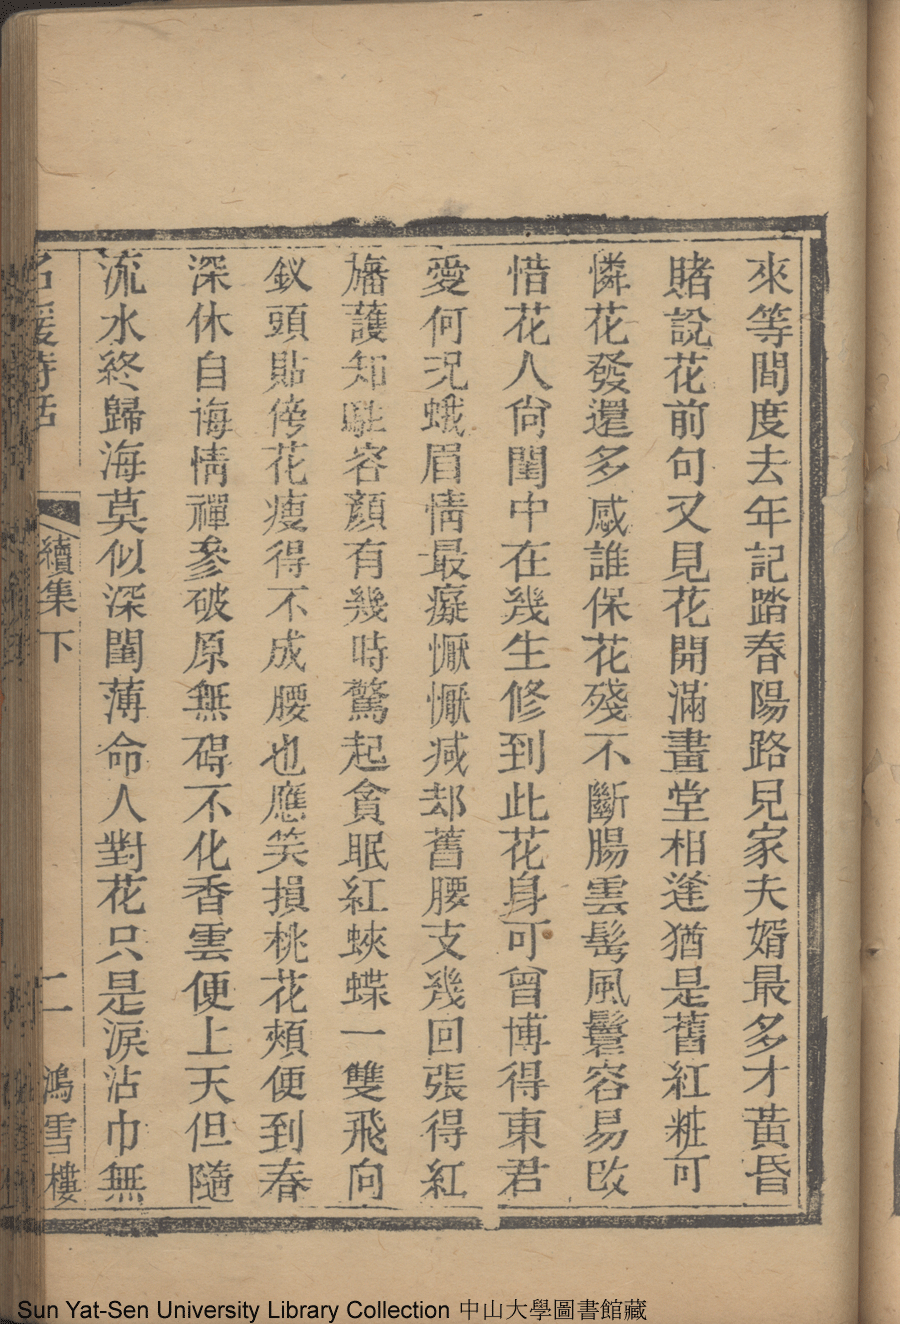 來等間度去年記踏春陽路兒家夫婿最多才黃昏
賭說花前句又見花開滿畫堂相逢猶是舊紅粧可
憐花發還多感誰保花殘不斷腸雲髩風鬟容易改
惜花人尙閨中在幾生修到此花身可曾博得東君
愛何況蛾眉情最癡懨懨減却舊腰支幾回張得紅
旛護知駐容顏有幾時驚起貪眠紅蛺蝶一雙飛向
釵頭貼傍花瘦得不成腰也應笑損桃花頰便到春
深休自悔情禪參破原無碍不化香雲便上天但隨
流水終歸海莫似深閨薄命人對花只是淚沾巾無
名媛詩話 續集下 二 鴻雪樓
Sun Yat-Sen University Library Collection 中山大學圖書館藏